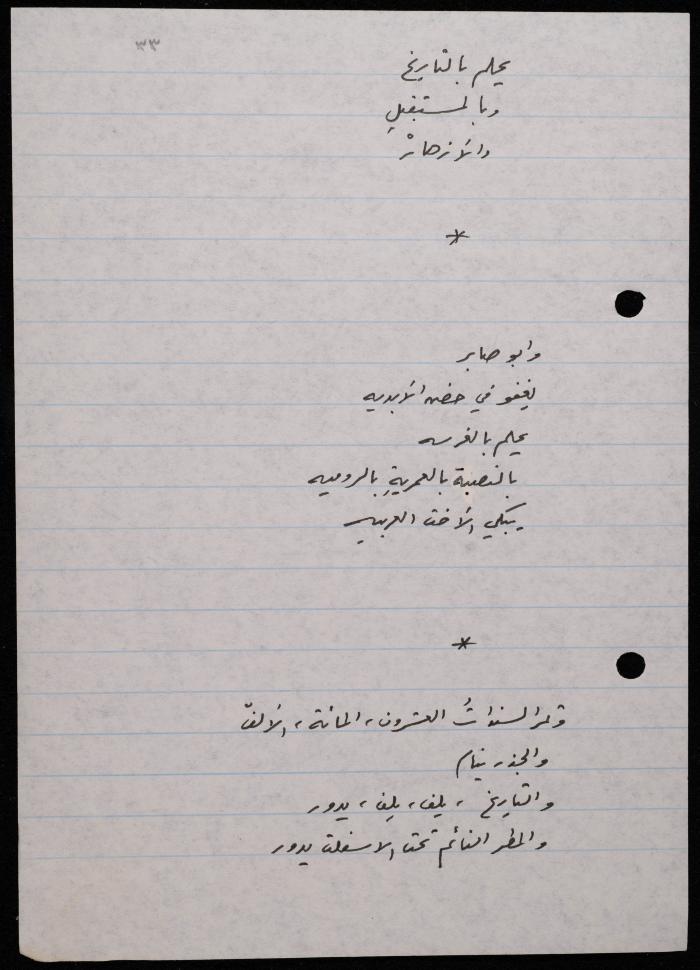 ٣٣
يحلم بالتاريخ
وبالمستقبلِ
والأزهارْ
*
وابو صابر
يغفو في حضن الأبديه
يحلم بالفرسه
بالنصبة بالعمريةِ بالروميه
يبكي الأخت العربيه
*
وتمر السنواتُ العشرون، المائة، الألفْ
والجذر ينام
والتاريخ ، يلف، يلف، يدور
والمطر النائم تحت الاسفلت يدور